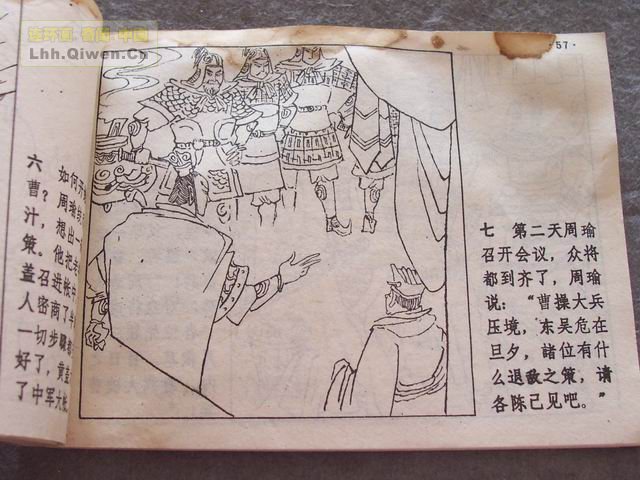 连环画.看图.中国
Lhh.Qiwen.Cn
·57·
六 如何开
曹？周瑜
想出一
策。他把老
盖召进帐中
人密商了半
一切步骤
好了，黄盖
了中军大帐
七 第二天周瑜
召开会议，众将
都到齐了，周瑜
说：“曹操大兵
压境，东吴危在
旦夕，諸位有什
么退敌之策，请
各陈己见吧。”